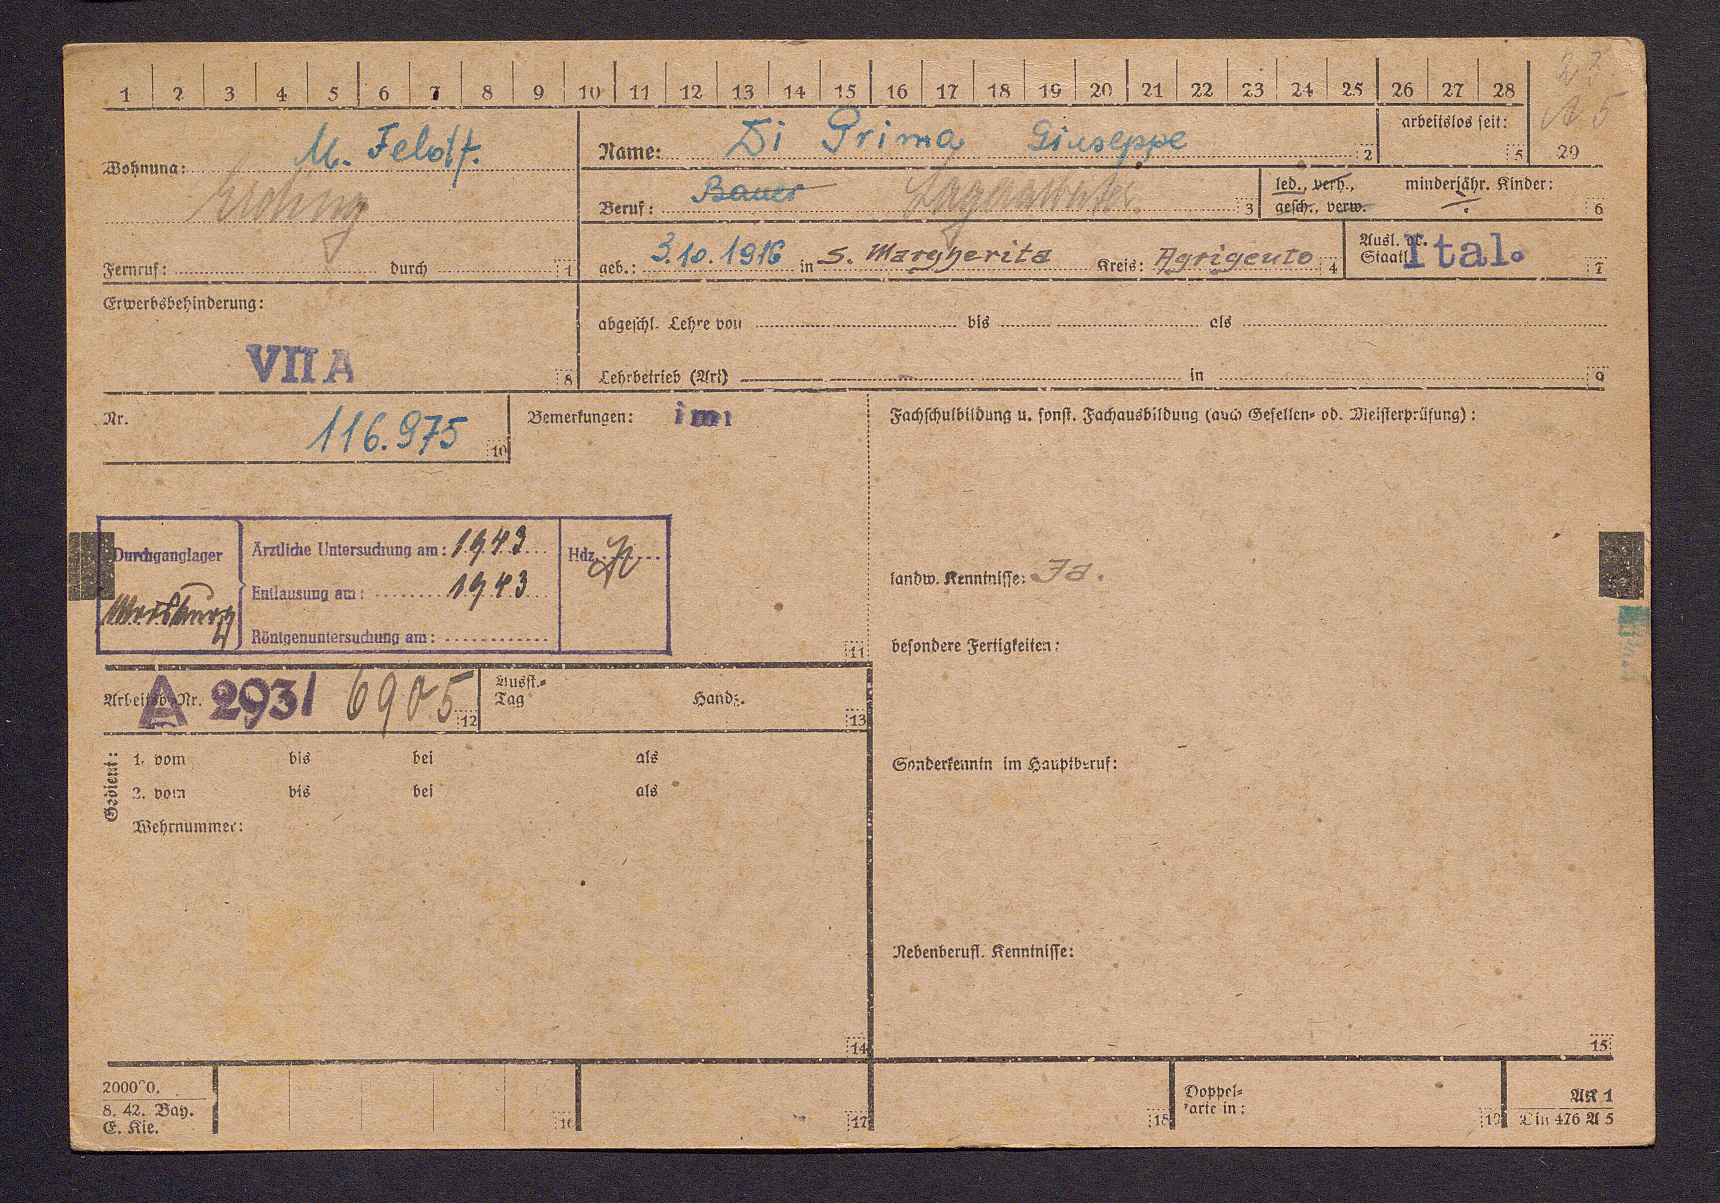 1 2 3 4 5 6 7 8 9 10 11 12 13 14 15 16 17 18 19 20 21 22 23 24 25 26 27 28 29
23
A 5
Wohnung: M. Feldf.
Erding
Fernruf: durch 1
Name: Di Prima Giuseppe 2
arbeitslos seit: 5
Beruf: Bauer 3
led., verh., gesch., verw.
minderjähr. Kinder: 6
geb.: 3.10.1916 in S. Margherita Kreis: Agrigento 4
Ausl. dt. Staatl. Ital. 7
Erwerbsbehinderung:
VII A 8
abgeschl. Lehre von bis als
Lehrbetrieb (Art) in 9
Nr. 116.975 10
Bemerkungen: imi
Fachschulbildung u. sonst. Fachausbildung (auch Gesellen- od. Meisterprüfung):
Durchganglager
Ärztliche Untersuchung am: 1943 Hdz.
Entlausung am: 1943
Röntgenuntersuchung am:
11
landw. Kenntnisse: Ja.
besondere Fertigkeiten:
Arbeitsb.-Nr. A 293/ 6905 12
Ausst.-Tag Handz. 13
Gedient:
1. vom bis bei als
2. vom bis bei als
Wehrnummer:
Sonderkenntn im Hauptberuf:
Nebenberufl. Kenntnisse:
14
15
200000.
8. 42. Bay.
E. Kie.
16
17
18
Doppel-
karte in:
19
AK 1
Din 476 A 5